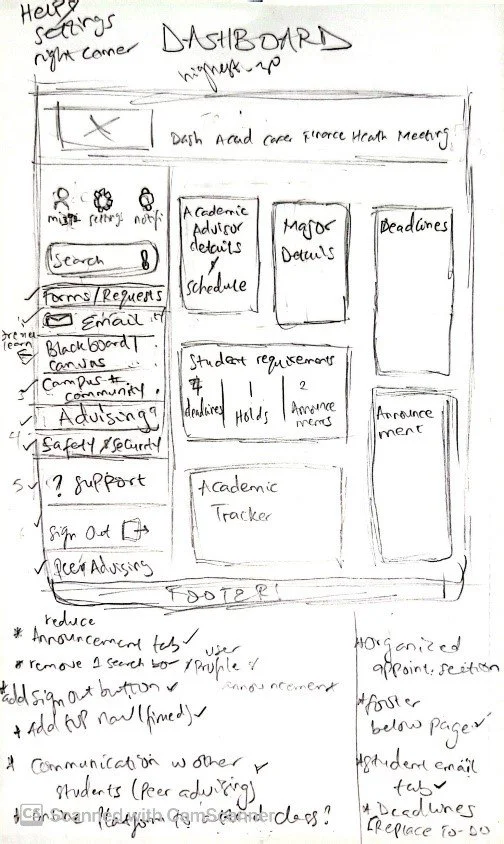 Help &
settings
right corner
DASHBOARD
Dash Acad Career Finance Health Meeting
settings notifi
Search
Forms/Requests
Email
Blackboard/
canvas
Campus +
community
Advising
Safety & security
? Support
Sign Out
Peer Advising
Academic
Advisor
details
/
schedule
Major
Details
Deadlines
Student requirements
4
deadlines
1
Holds
2
Announce
ments
Academic
Tracker
Announce
ment
FOOTER!
reduce
* Announcement tab ✓
* remove 1 search box / user
Profile
announcement
* add sign out button ✓
* Add top nav (fixed) ✓
* Communication w other ✓
students (peer advising)
* online platform to class?
* Organized
appoint. section
* footer
below page ✓
* student email
tab ✓
* Deadlines
[Replace TO-DO
CS Scanned with CamScanner